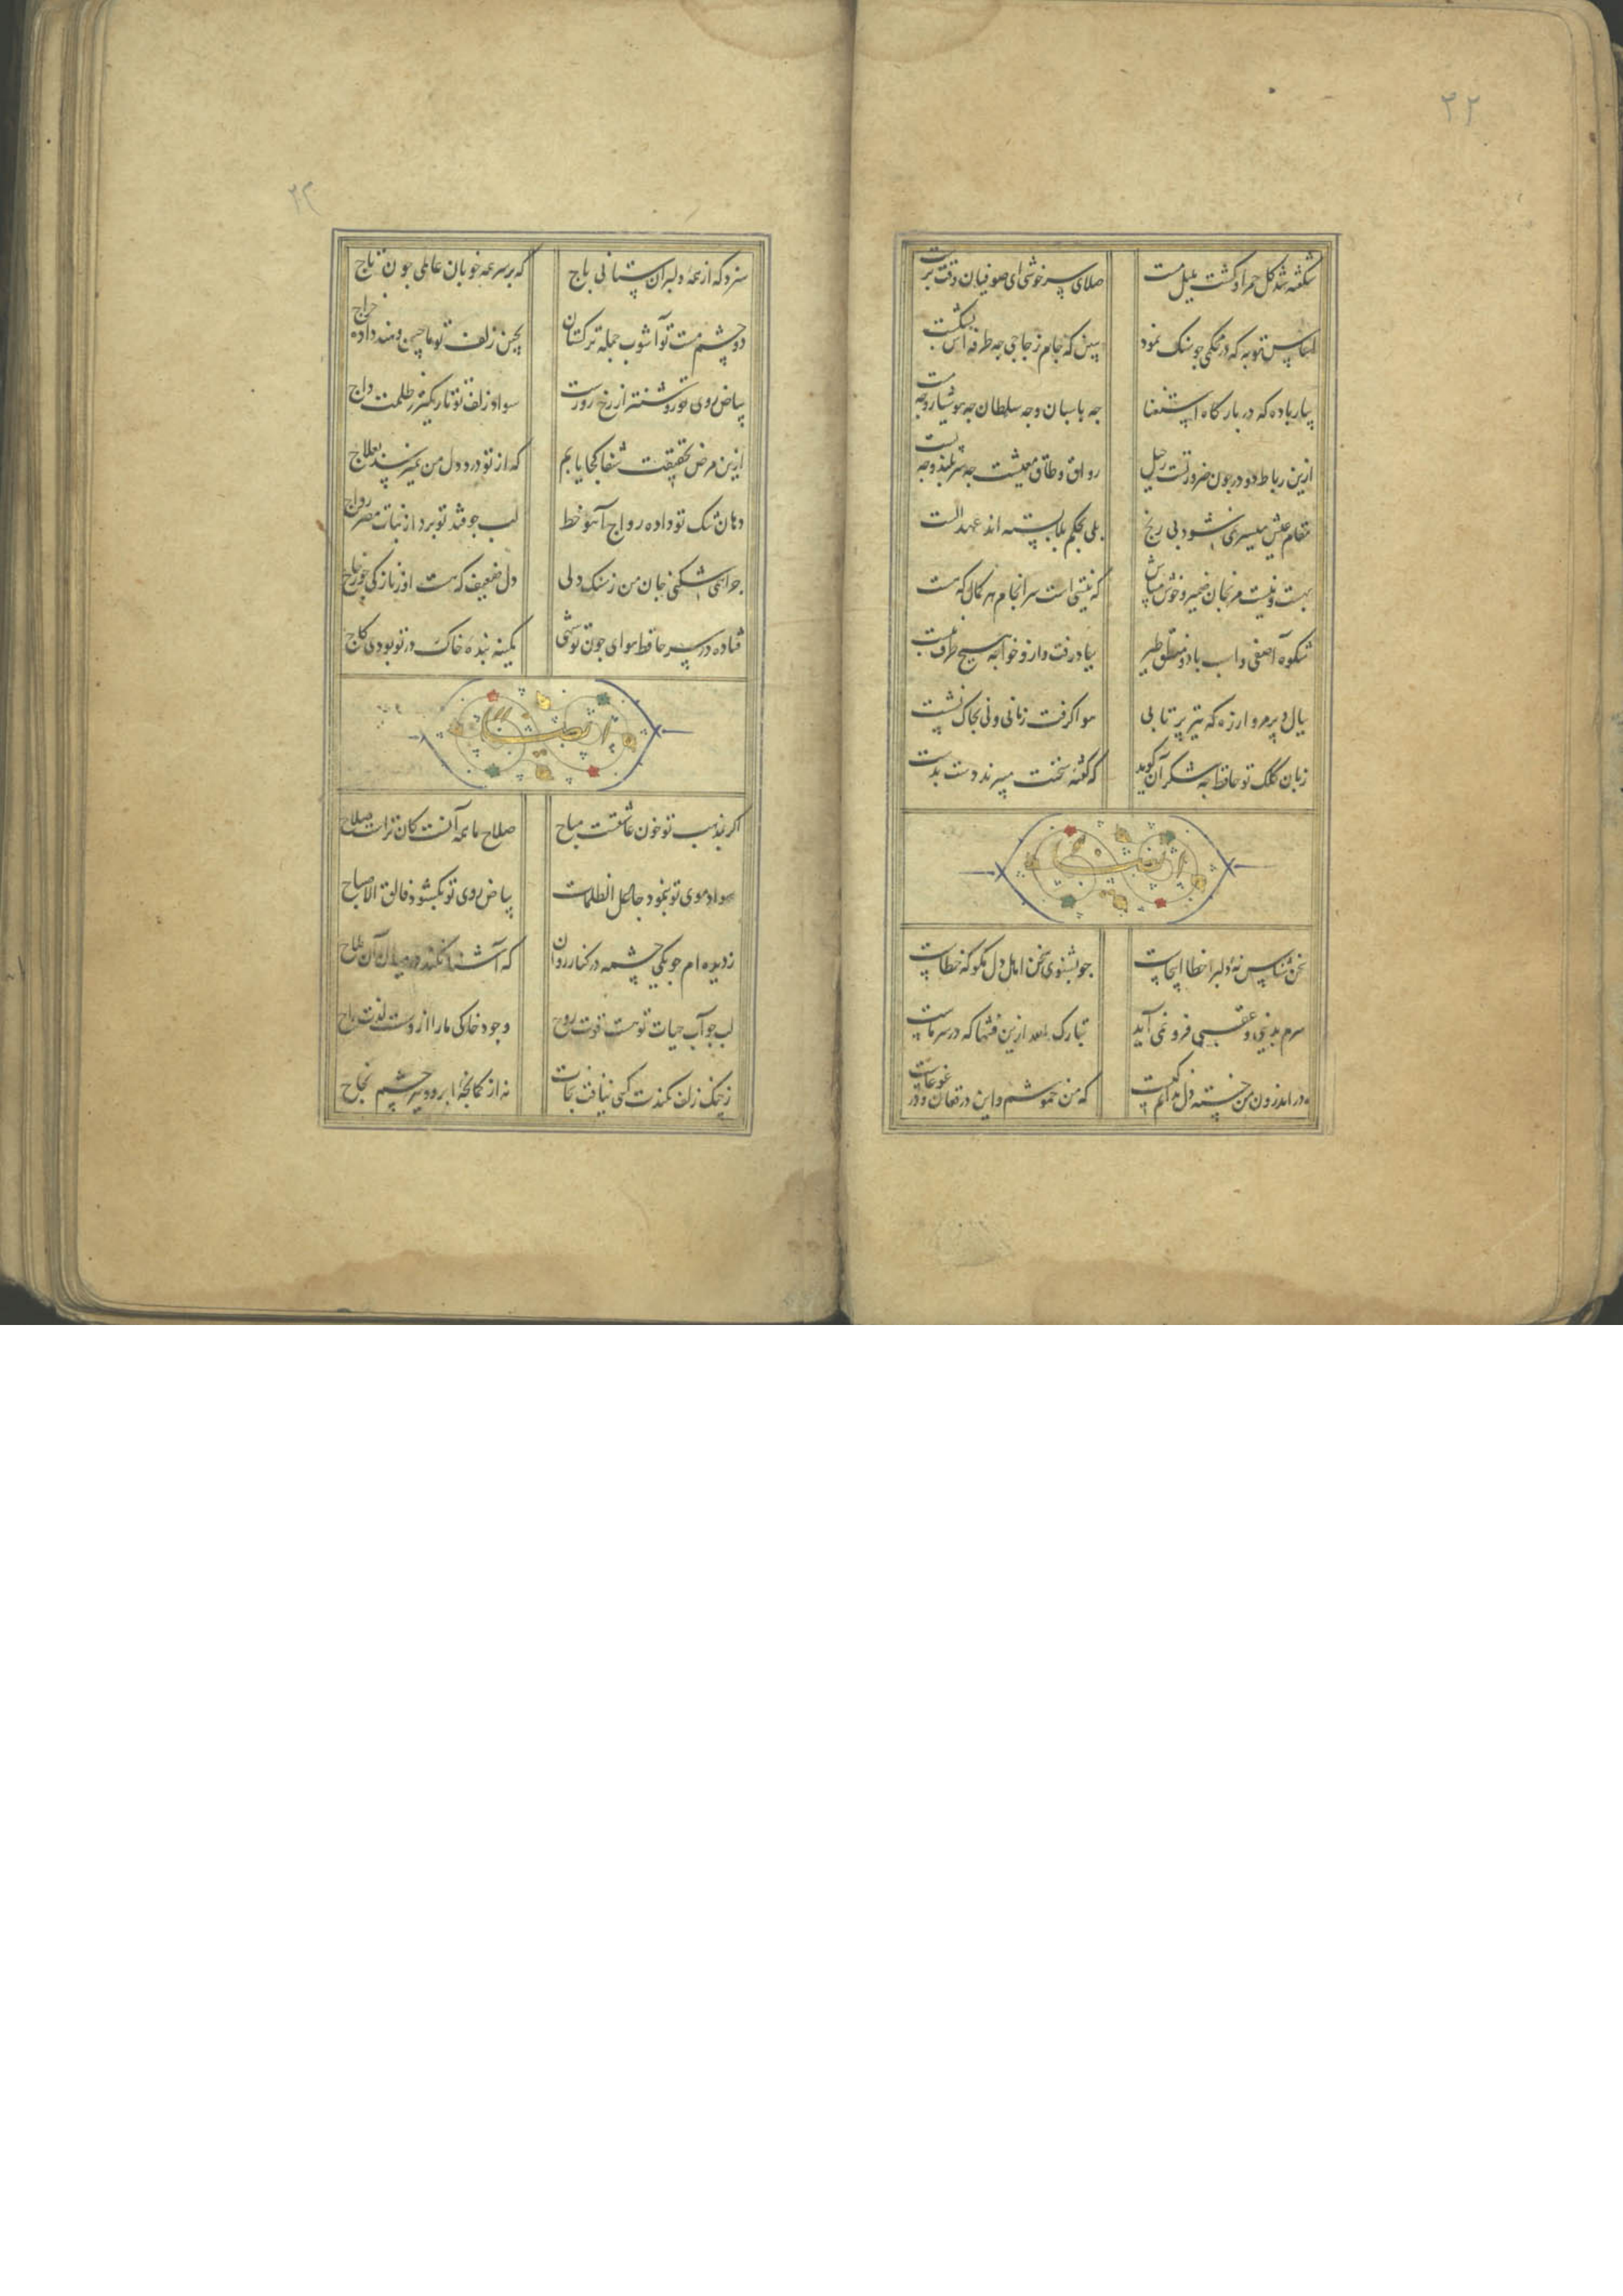 ۲۲
شکفته شد کل حمرا و کشت بلبل مست صلای سرخوشی ای صوفیان وقت پرست
اساس توبه که در محکمی جو سنک نمود ببین که جام زجاجی جه طرفه اش بشکست
بیار باده که در بارکاه استغنا جه پاسبان و جه سلطان جه هوشیار و جه مست
ازین رباط دو در جون ضرورتست رحیل رواق و طاق معیشت جه سربلند و جه پست
مقام عیش میسر نمی شود بی رنج بلی بحکم بلا بسته اند عهد الست
بهست و نیست مرنجان ضمیر و خوش میباش که نیستی است سرانجام هر کمال که هست
شکوه آصفی و اسب باد و منطق طیر بباد رفت و ازو خواجه هیچ طرف نبست
ببال و پر مرو از ره که تیر پرتابی هوا کرفت زمانی ولی بخاک نشست
زبان کلک تو حافظ جه شکر آن کوید که کفته سخنت میبرند دست بدست
ایضا
سخن شناس نه دلبرا خطا اینجاست جو بشنوی سخن اهل دل مکو که خطاست
سرم بدنیی و عقبی فرو نمی آید تبارک الله ازین فتنها که در سر ماست
در اندرون من خسته دل ندانم کیست که من خموشم و این در فغان و در غوغاست
۲۳
سزد که از همه دلبران ستانی باج که بر سر همه خوبان عالمی جون تاج
دو چشم مست تو آشوب جمله ترکستان بچین زلف تو ماچین و هند داده خراج
بیاض روی تو روشنتر از رخ روزست سواد زلف تو تاریکتر ز ظلمت داج
ازین مرض بحقیقت شفا کجا یابم که از تو درد دل من نمیرسد بعلاج
دهان تنک تو داده رواج آب خضر لب جو قند تو برد از نبات مصر رواج
جرا همی شکنی جان من ز سنک دلی دل ضعیف که هست او ز نازکی جو زجاج
فتاده در سر حافظ هوای جون تو شهی کمینه بنده خاک در تو بودی کاج
ایضا
اکر بمذهب تو خون عاشقست مباح صلاح ما همه آنست کان تراست صلاح
سواد موی تو بنمود جاعل الظلمات بیاض روی تو بکشود فالق الاصباح
ز دیده ام جو یکی چشمه در کنار روان که آشنا نکند در میان آن ملاح
لب جو آب حیات تو هست قوت روح وجود خاکی ما را ازوست لذت راح
ز چنک زلف کمندت کسی نیافت نجات نه از کمانچه ابرو و تیر چشم نجاح